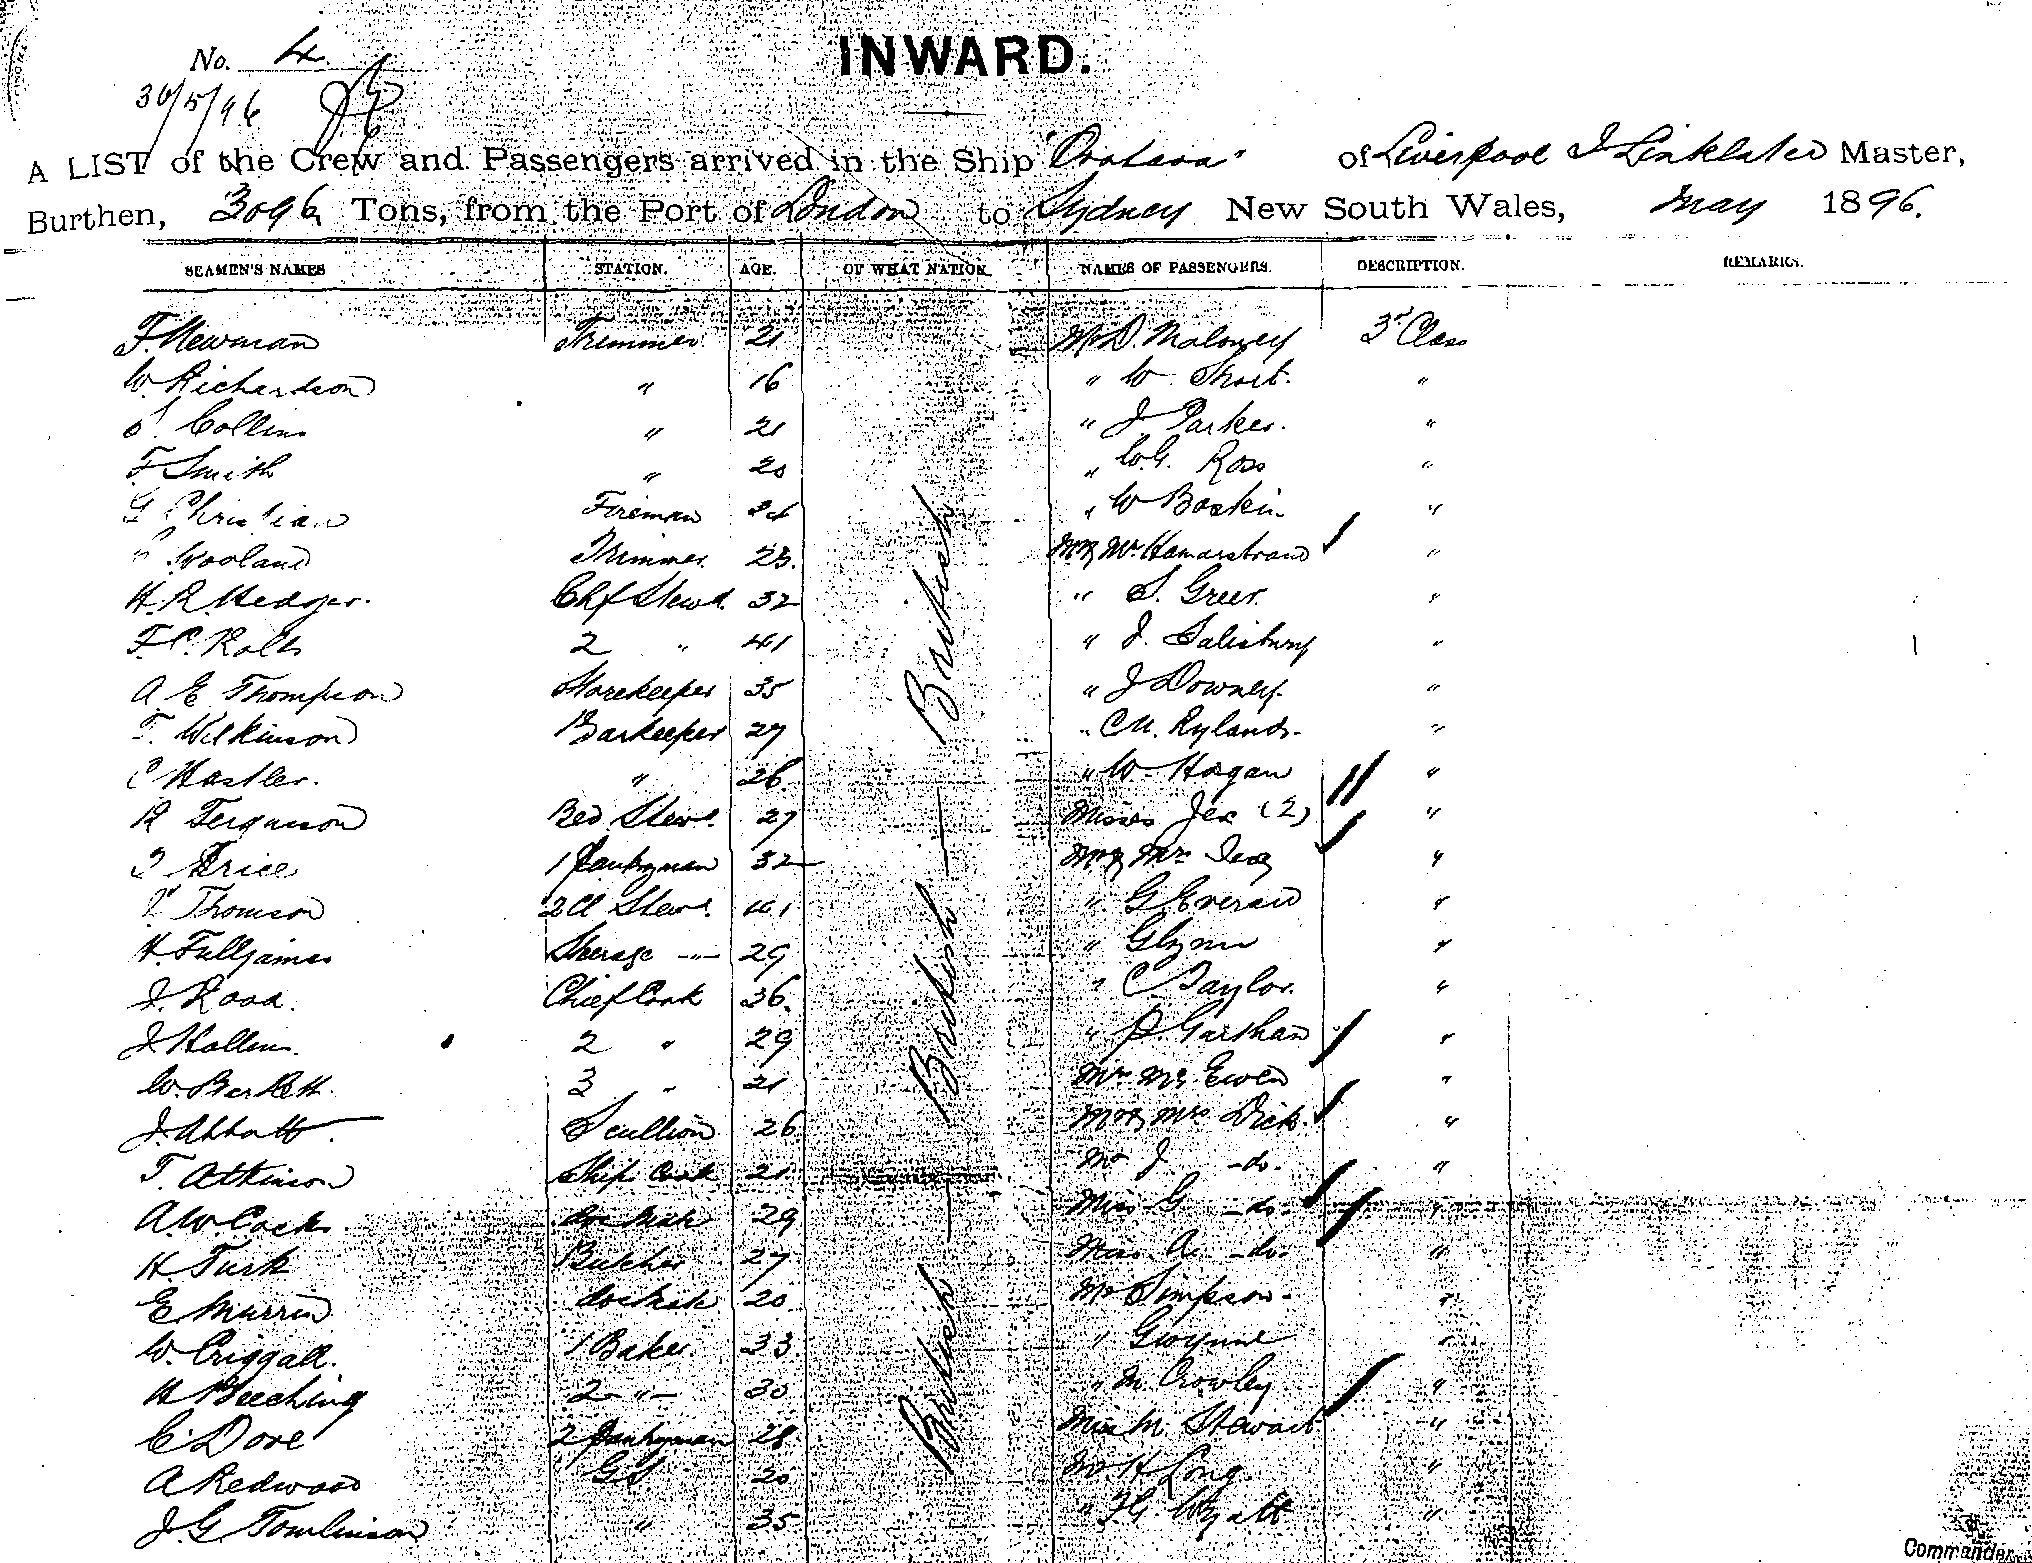 INWARD.
No. 4
30/5/96
A LIST of the Crew and Passengers arrived in the Ship "Orotava" of Liverpool J Linklater Master,
Burthen, 3096 Tons, from the Port of London to Sydney New South Wales, May 1896.
SEAMEN'S NAMES STATION. AGE. OF WHAT NATION. NAMES OF PASSENGERS. DESCRIPTION. REMARKS.
F. Newman Trimmer 21 Mr D. Maloney 3rd Class
W. Richardson " 16 " W. Short. "
S. Collins " 21 " J Parker. "
F Smith " 20 " W.G. Ross "
G Christian Fireman 24 " W Boskin "
Wooland Trimmer 23. Mr & Mrs Hamarstrand "
H. R. Hedger. Chf Stewd. 32 " S. Greer. "
F. C. Rolls 2 " 41 " J. Salisbury "
A. E Thompson Storekeeper 35 " J Downey. "
F. Wilkinson Barkeeper 27 " C M. Rylands. "
C Hastler. " 26 " W. Hogan "
R Ferguson Bed Stewd. 27 Misses Jex (2) "
Price 1 Pantryman 32 Mr & Mrs "
Thomson 2 Cl Stewd. 41 " G Everard "
H. Fulljames Steerage -"- 29 " Glynn "
J. Road. Chief Cook 36. " C. Taylor. "
J. Hollins. 2 " 29 " P. Garthan "
W. Bartlett. 3 " 21 Mrs Mc Ewen "
J. Abbott. Scullion 26 Mr & Mrs Dick. "
T. Atkinson Ship Cook 21 Mr J -do- "
A. W. Cocks. 29 Miss G -do- "
H. Turk Butcher 27 Miss A. -do- "
E Murrin 20 Mr Simpson. "
W. Criggall. 1 Baker 33 " Gwynne "
H Beeching 2 -"- 30 " M. Crowley "
C. Dove 2 Pantryman 28 Miss M. Stewart "
A Redwood G S 20 Mr H Long. "
J. G. Tomlinson " 35 " F. G. Wyatt "
British — British — British
Commander.